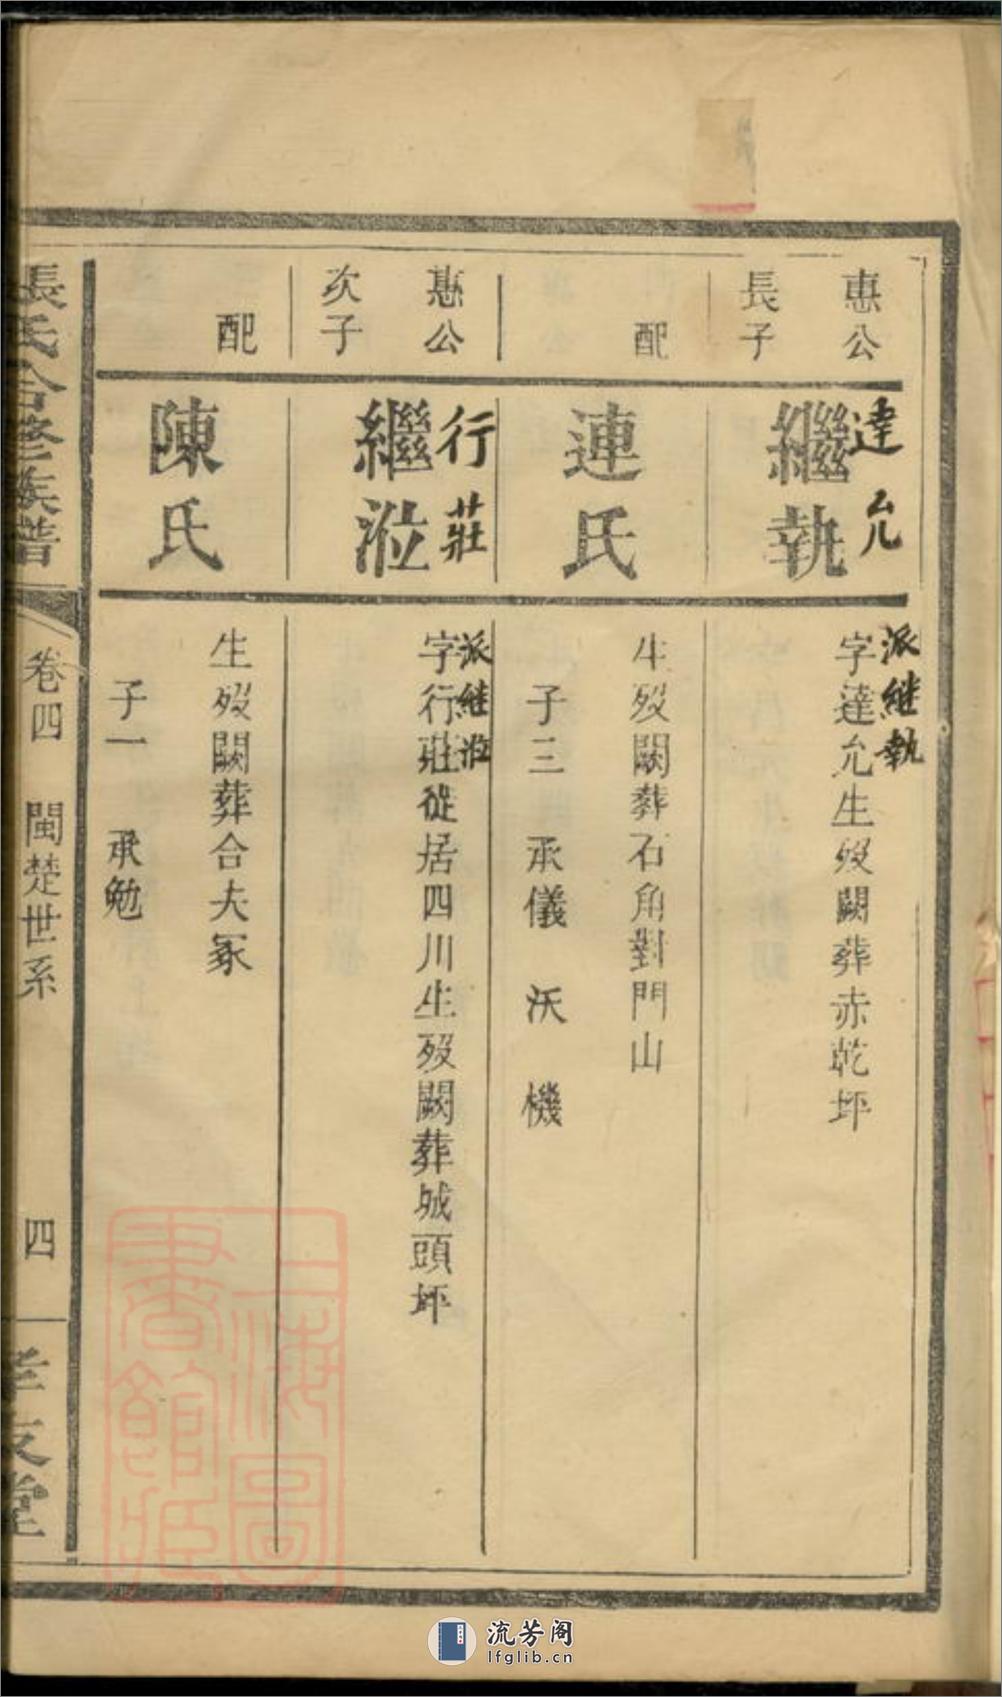 惠公
長子
達允
繼執
派继執
字達允生歿闕葬赤乾坪
配
連氏
生歿闕葬石角對門山
子三 承儀 沃 機
惠公
次子
行莊
繼涖
派继涖
字行莊徙居四川生歿闕葬城頭坪
配
陳氏
生歿闕葬合夫冢
子一 承勉
張氏合修族譜
卷四 閩楚世系
四
孝友堂
上海圖
書館藏
流芳阁
lfglib.cn